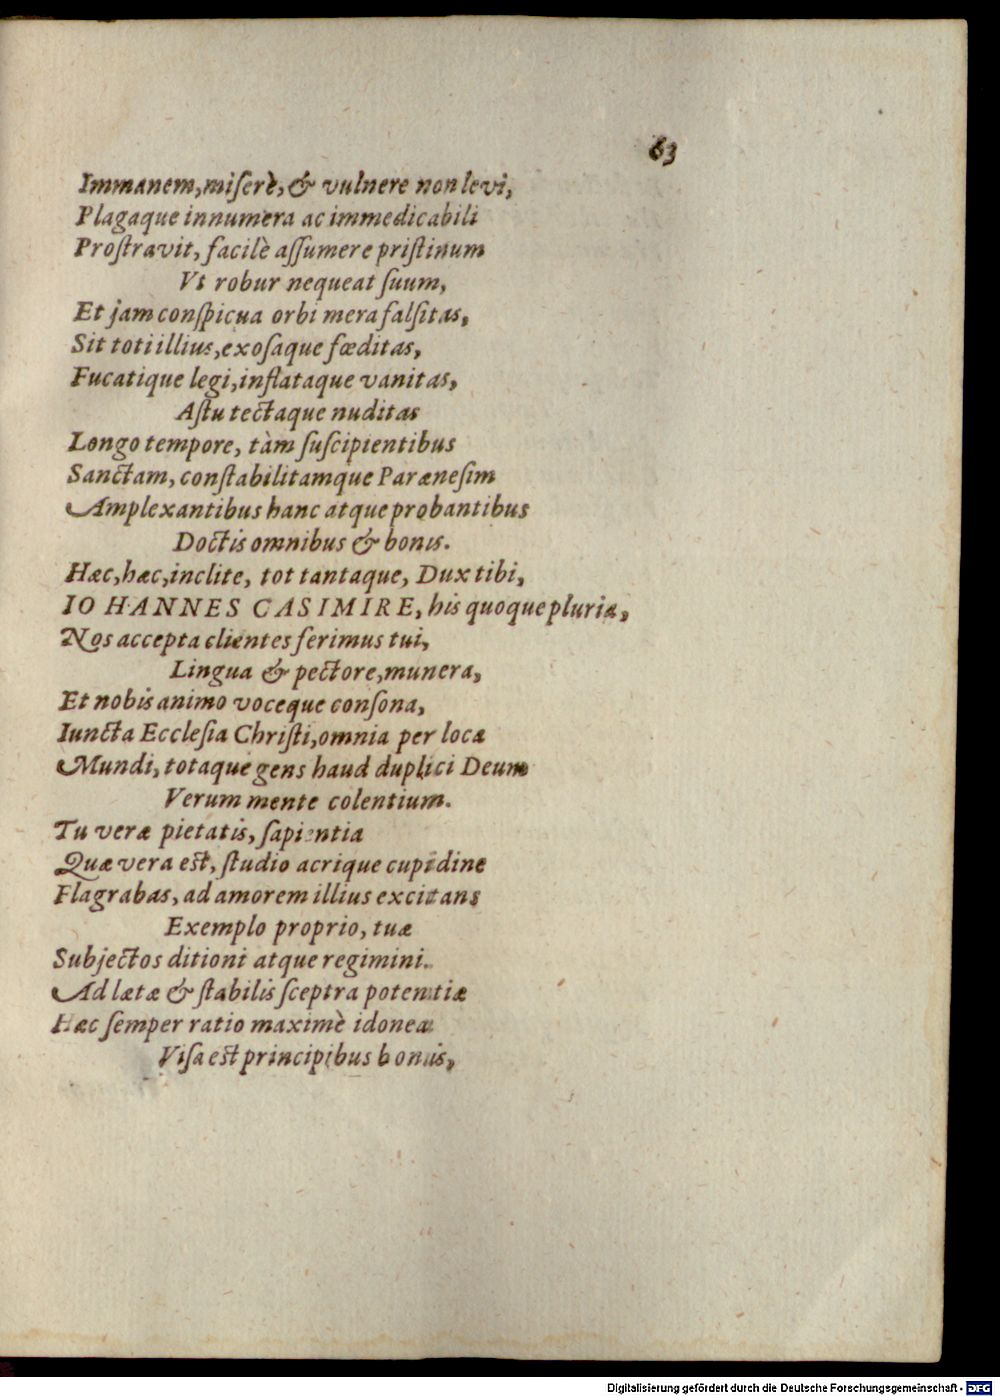 63
Immanem, miserè, & vulnere non levi,
Plagaque innumera ac immedicabili
Proſtravit, facilè aſſumere priſtinum
Vt robur nequeat ſuum,
Et jam conſpicua orbi mera falſitas,
Sit toti illius, exoſaque fœditas,
Fucatique legi, inflataque vanitas,
Aſtu tectaque nuditas
Longo tempore, tàm ſuſcipientibus
Sanctam, conſtabilitamque Paræneſim
Amplexantibus hanc atque probantibus
Doctis omnibus & bonis.
Hæc, hæc, inclite, tot tantaque, Dux tibi,
IOHANNES CASIMIRE, his quoque pluria,
Nos accepta clientes ferimus tui,
Lingua & pectore, munera,
Et nobis animo voceque conſona,
Iuncta Eccleſia Chriſti, omnia per loca
Mundi, totaque gens haud duplici Deum
Verum mente colentium.
Tu veræ pietatis, ſapientia
Quæ vera est, ſtudio acrique cupidine
Flagrabas, ad amorem illius excitans
Exemplo proprio, tuæ
Subjectos ditioni atque regimini.
Ad lætæ & ſtabilis ſceptra potentiæ
Hæc ſemper ratio maximè idonea
Viſa est principibus bonis,
Digitalisierung gefördert durch die Deutsche Forschungsgemeinschaft - DFG